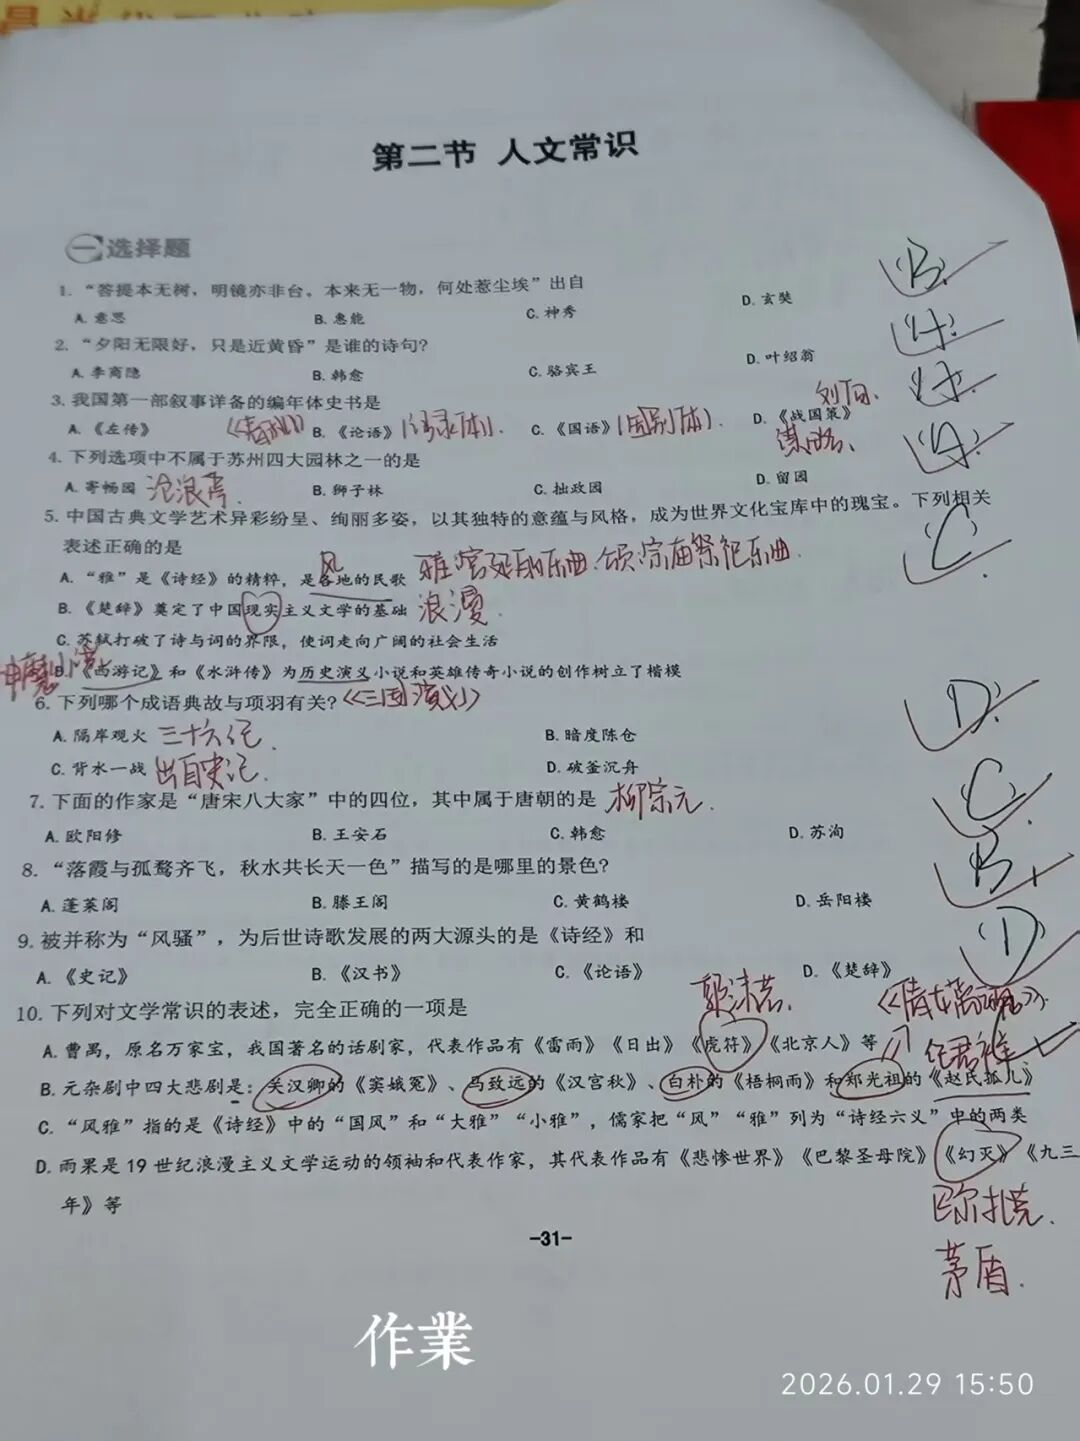 第二节 人文常识
一 选择题
1. “菩提本无树，明镜亦非台。本来无一物，何处惹尘埃”出自 (B)
A. 意思 B. 惠能 C. 神秀 D. 玄奘
2. “夕阳无限好，只是近黄昏”是谁的诗句? (A)
A. 李商隐 B. 韩愈 C. 骆宾王 D. 叶绍翁
3. 我国第一部叙事详备的编年体史书是 刘向. (A)
A. 《左传》 《春秋》 B. 《论语》 (语录体). C. 《国语》 (国别体). D. 《战国策》
谋略.
4. 下列选项中不属于苏州四大园林之一的是 (A)
A. 寄畅园 沧浪亭. B. 狮子林 C. 拙政园 D. 留园
5. 中国古典文学艺术异彩纷呈、绚丽多姿，以其独特的意蕴与风格，成为世界文化宝库中的瑰宝。下列相关
表述正确的是 (C)
风
A. “雅”是《诗经》的精粹，是各地的民歌 雅:宫廷乐曲.颂:宗庙祭祀乐曲.
B. 《楚辞》奠定了中国现实主义文学的基础 浪漫.
C. 苏轼打破了诗与词的界限，使词走向广阔的社会生活
神魔小说
D. 《西游记》和《水浒传》为历史演义小说和英雄传奇小说的创作树立了楷模
6. 下列哪个成语典故与项羽有关? 《三国演义》 (D)
A. 隔岸观火 三十六计. B. 暗度陈仓
C. 背水一战 出自史记. D. 破釜沉舟
7. 下面的作家是“唐宋八大家”中的四位，其中属于唐朝的是 柳宗元. (C)
A. 欧阳修 B. 王安石 C. 韩愈 D. 苏洵
8. “落霞与孤鹜齐飞，秋水共长天一色”描写的是哪里的景色? B
A. 蓬莱阁 B. 滕王阁 C. 黄鹤楼 D. 岳阳楼
9. 被并称为“风骚”，为后世诗歌发展的两大源头的是《诗经》和 (D)
A. 《史记》 B. 《汉书》 C. 《论语》 D. 《楚辞》
10. 下列对文学常识的表述，完全正确的一项是 郭沫若. 《倩女离魂》.
A. 曹禺，原名万家宝，我国著名的话剧家，代表作品有《雷雨》《日出》《虎符》《北京人》等 纪君祥
B. 元杂剧中四大悲剧是：关汉卿的《窦娥冤》、马致远的《汉宫秋》、白朴的《梧桐雨》和郑光祖的《赵氏孤儿》
C. “风雅”指的是《诗经》中的“国风”和“大雅”“小雅”，儒家把“风”“雅”列为“诗经六义”中的两类
D. 雨果是19世纪浪漫主义文学运动的领袖和代表作家，其代表作品有《悲惨世界》《巴黎圣母院》《幻灭》《九三
年》等
巴尔扎克.
茅盾.
-31-
作業
2026.01.29 15:50